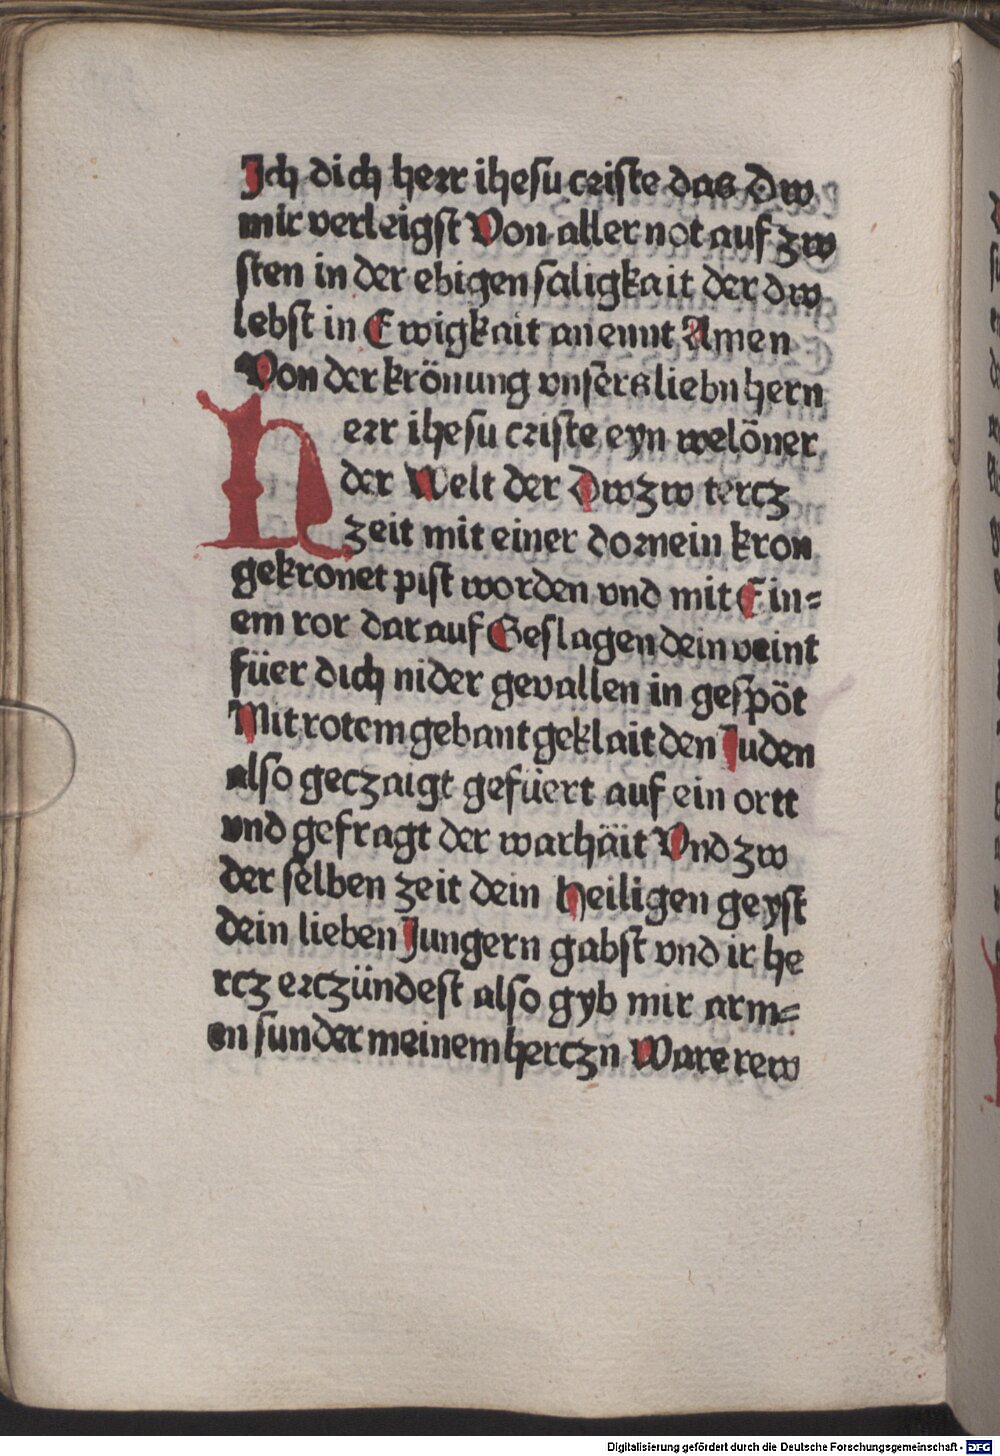 Ich dich herr ihesu criste das Dw
mir verleigst Von aller not auf zw
sten in der ebigen saligkait der dw
lebst in Ewigkait an ennt Amen
Von der krönung vnsers liebn hern
Herr ihesu criste eyn welöner
der Welt der Dw zw tercz
zeit mit einer dornein kron
gekronet pist worden vnd mit Ein=
em ror dar auf Geslagen dein veint
füer dich nider gevallen in gespöt
Mit rotem gebant geklait den Juden
also geczaigt gefüert auf ein ortt
vnd gefragt der warhäit Vnd zw
der selben zeit dein heiligen geyst
dein lieben Jungern gabst vnd ir he
rcz erczündest also gyb mir arm=
en sunder meinem herczn Ware rew
Digitalisierung gefördert durch die Deutsche Forschungsgemeinschaft - DFG